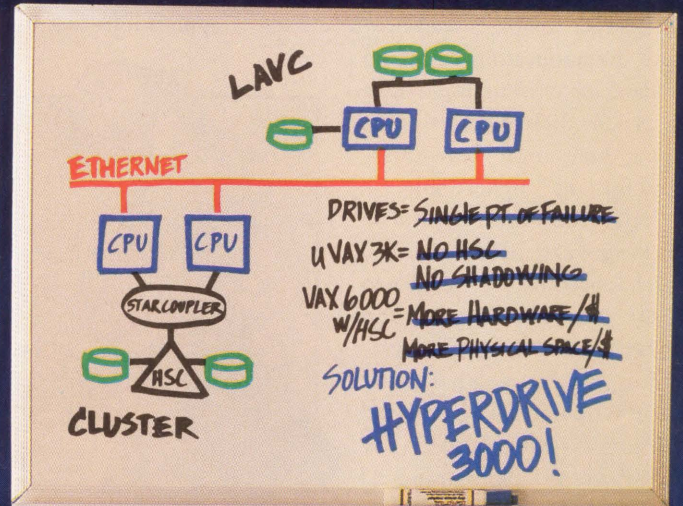 LAVC
CPU CPU
ETHERNET
CPU CPU
STARCOUPLER
HSC
CLUSTER
DRIVES= SINGLE PT. OF FAILURE
UVAX 3K= NO HSC
NO SHADOWING
VAX 6000
W/HSC= MORE HARDWARE/$
MORE PHYSICAL SPACE/$
SOLUTION:
HYPERDRIVE
3000!